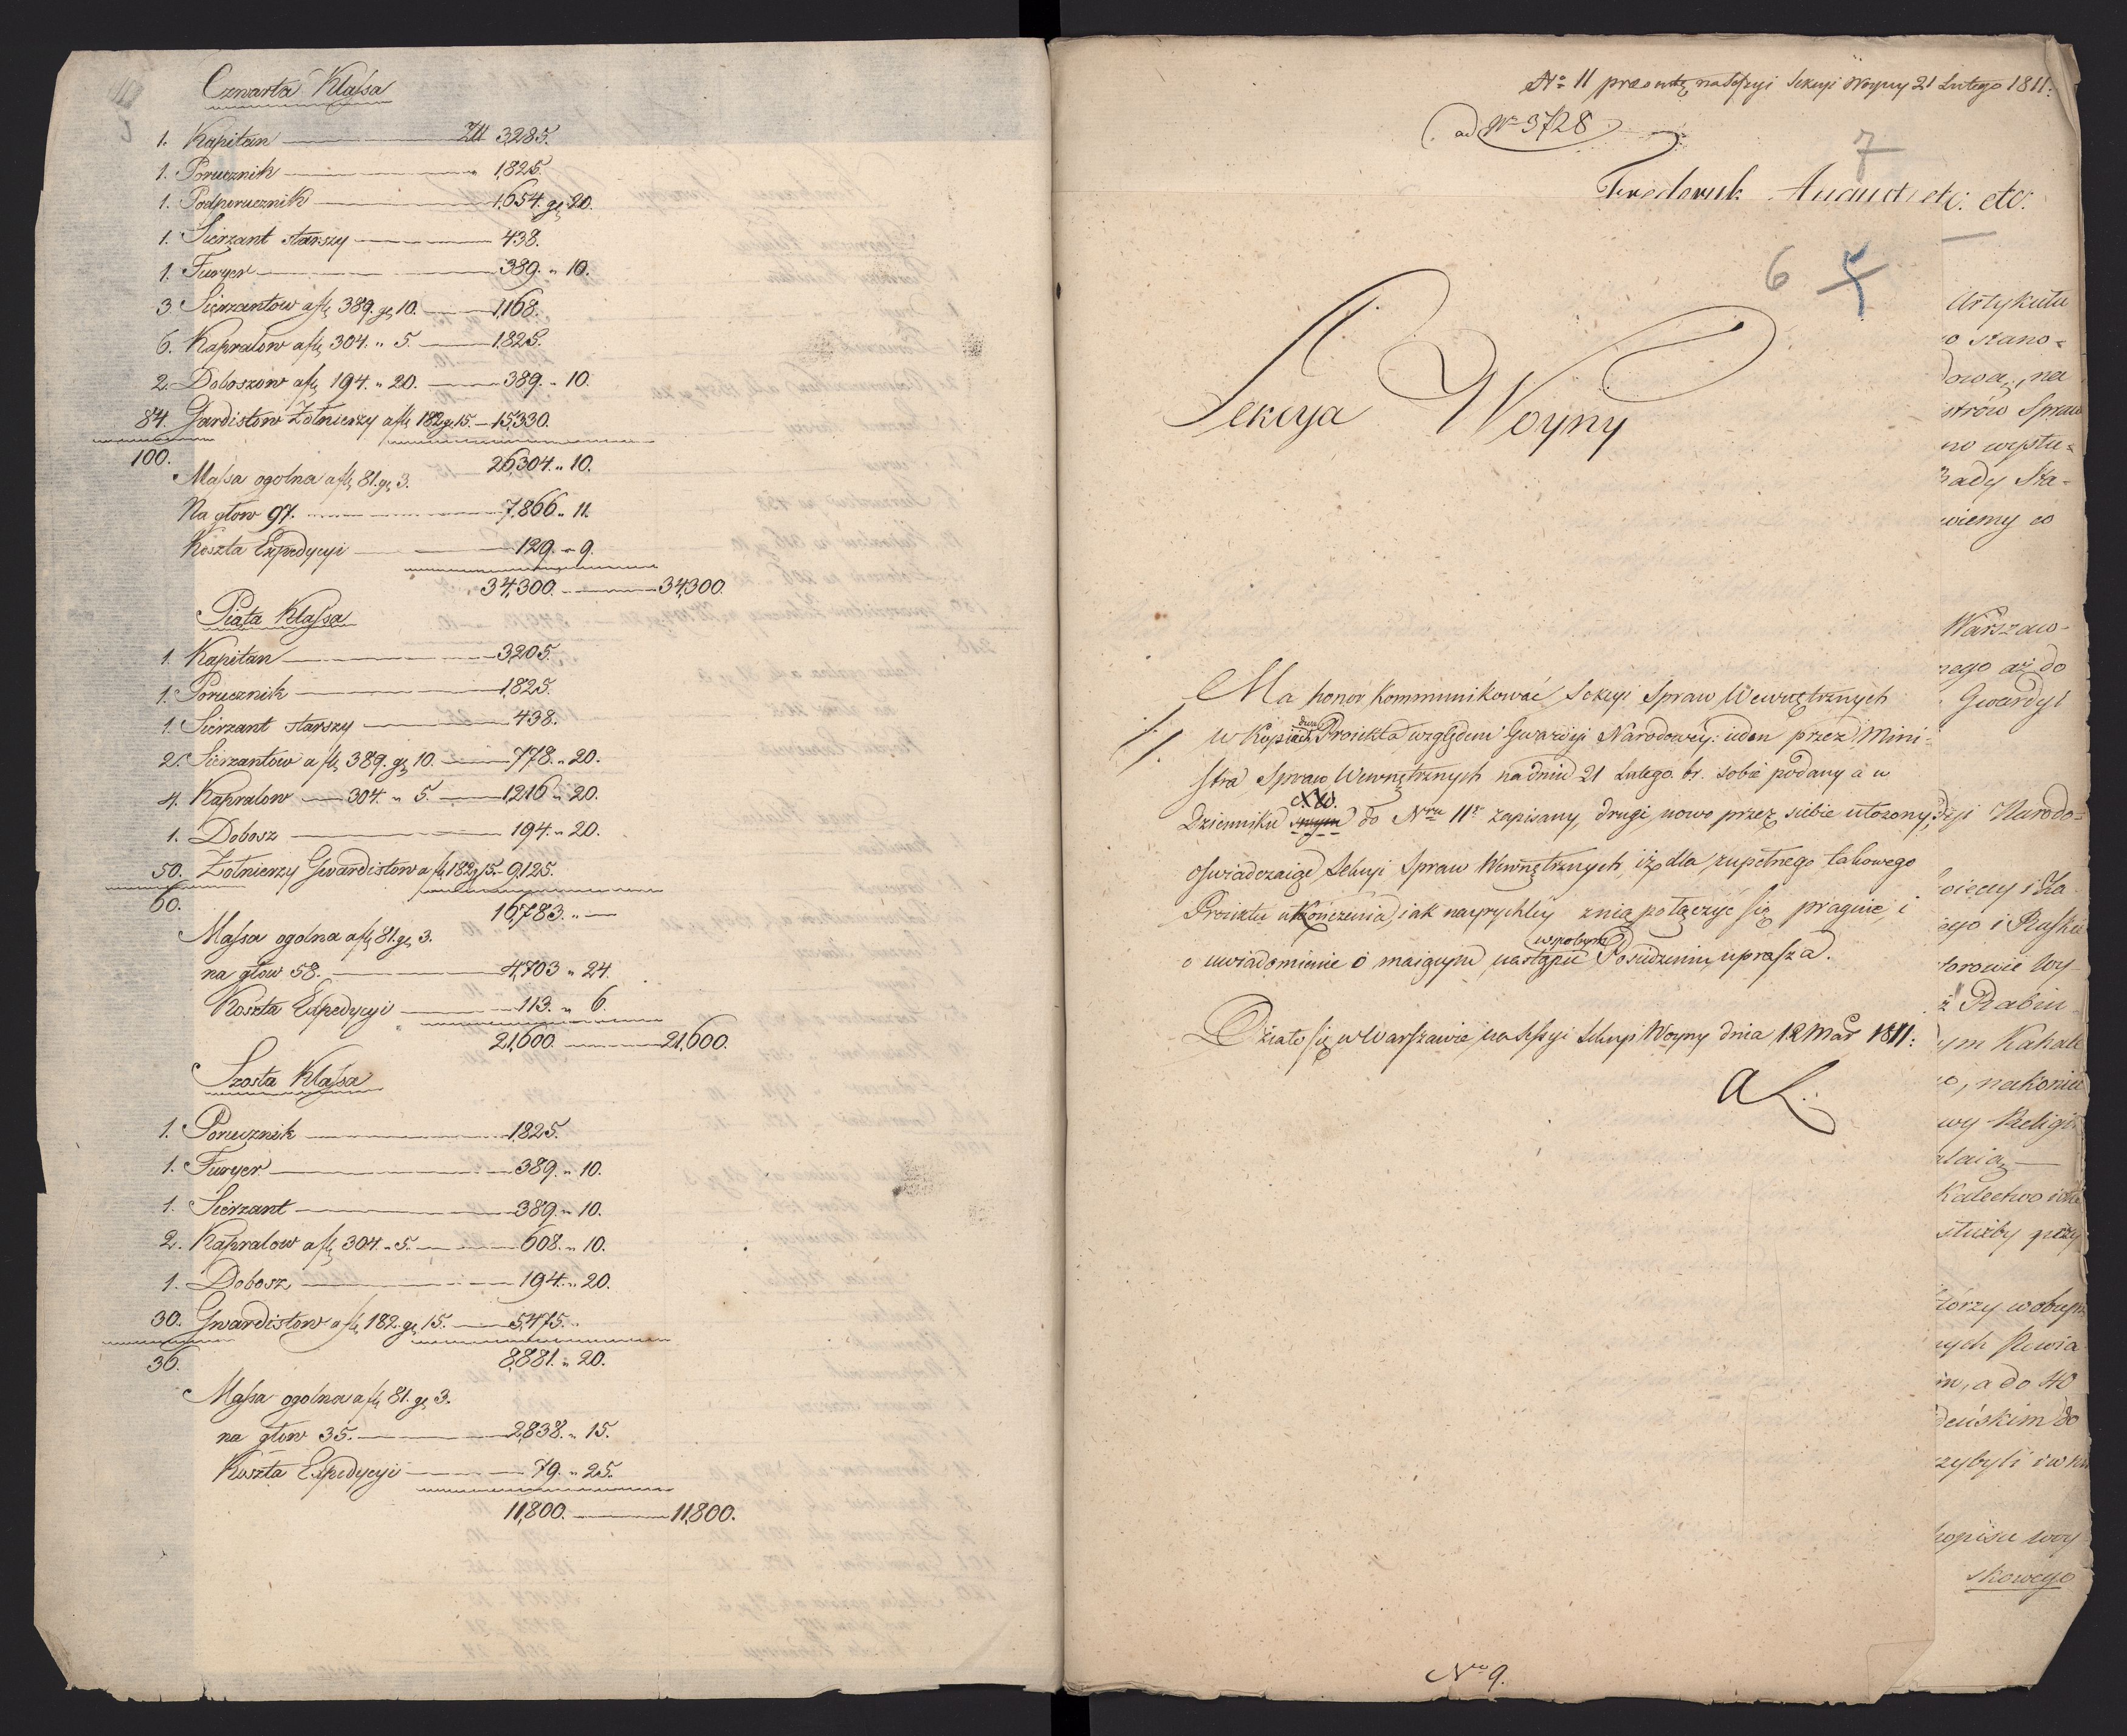 Czwarta Klassa
1. Kapitan — Złł 3,285.
1. Porucznik — " 1,825.
1. Podporucznik — 1,654. gr 20.
1. Sierzant starszy — 438.
1. Furyer — 389. " 10.
3. Sierzantow a fl 389. gr 10. — 1,168.
6. Kapralow a fl 304. " 5. — 1,825.
2. Doboszow a fl 194. " 20. — 389. " 10.
84. Gwardistow Zołnierzy a fl 182 gr 15. — 15,330.
100.
26,304. " 10.
Massa ogolna a fl 81. gr 3.
Na głow 97. — 7,866 " 11.
Koszta Expedycyi — 129. " 9.
34,300. — 34,300.
Piąta Klassa
1. Kapitan — 3,205.
1. Porucznik — 1,825.
1. Sierzant starszy — 438.
2. Sierzantow a fl 389. gr 10. — 778. " 20.
4. Kapralow — 304. " 5. — 1,216 " 20.
1. Dobosz — 194. " 20.
50. Zołnierzy Gwardistow a fl 182 gr 15. — 9,125.
60.
16,783. " —
Massa ogolna a fl 81. gr 3.
na głow 58. — 4,703 " 24.
Koszta Expedycyi — 113. " 6.
21,600. — 21,600.
Szosta Klassa
1. Porucznik — 1,825.
1. Furyer — 389. " 10.
1. Sierzant — 389. " 10.
2. Kapralow a fl 304. " 5. — 608. " 10.
1. Dobosz — 194. " 20.
30. Gwardistow a fl 182. gr 15. — 5,475.
36.
8,881. " 20.
Massa ogolna a fl 81. gr 3.
na głow 35. — 2,838. " 15.
Koszta Expedycyi — 79. " 25.
11,800. — 11,800.
No 11 na Sessyi Sekcyi Woyny 21 Lutego 1811.
ad No 3728
7
Frederyk August etc: etc:
6 5
Sekcya Woyny
Ma honor kommunikować Sekcyi Spraw Wewnętrznych
w Kopiach dwa Proiekta względem Gwardyi Narodowéy: ieden przez Mini-
stra Spraw Wewnętrznych na dniu 21 Lutego br. sobie podany a w
Dzienniku swym do Nru 11o zapisany, drugi nowo przez siebie ułozony,
oswiadczaiąc Sekcyi Spraw Wewnętrznych, iz dla zupełnego takowego
Proiektu ukończenia, iak nayrychléy z nią połączyć się pragnie, i
o uwiadomienie o maiącym nastąpić wspolnym Posiedzeniu, uprasza.
Działo się w Warszawie na Sessyi Sekcyi Woyny dnia 12 Mar 1811:
AL.
No 9.
Artykułu
o stano-
dową, na
istrów Spraw
no wystu-
Rady Sta-
wiemy co
Warszaw-
nego aż do
Gwardyi
dyi Narodo-
i Ra
ego i Rusku
torowie Wy-
ż Rabin
ym Kahale
o, nakoniec
wy Religi
ałaią —
Kalectwo
służby przy
tórzy w obuym
nych Powia
m, a do 40
deńskim do
zybyli i w
kopisu woy
skowego